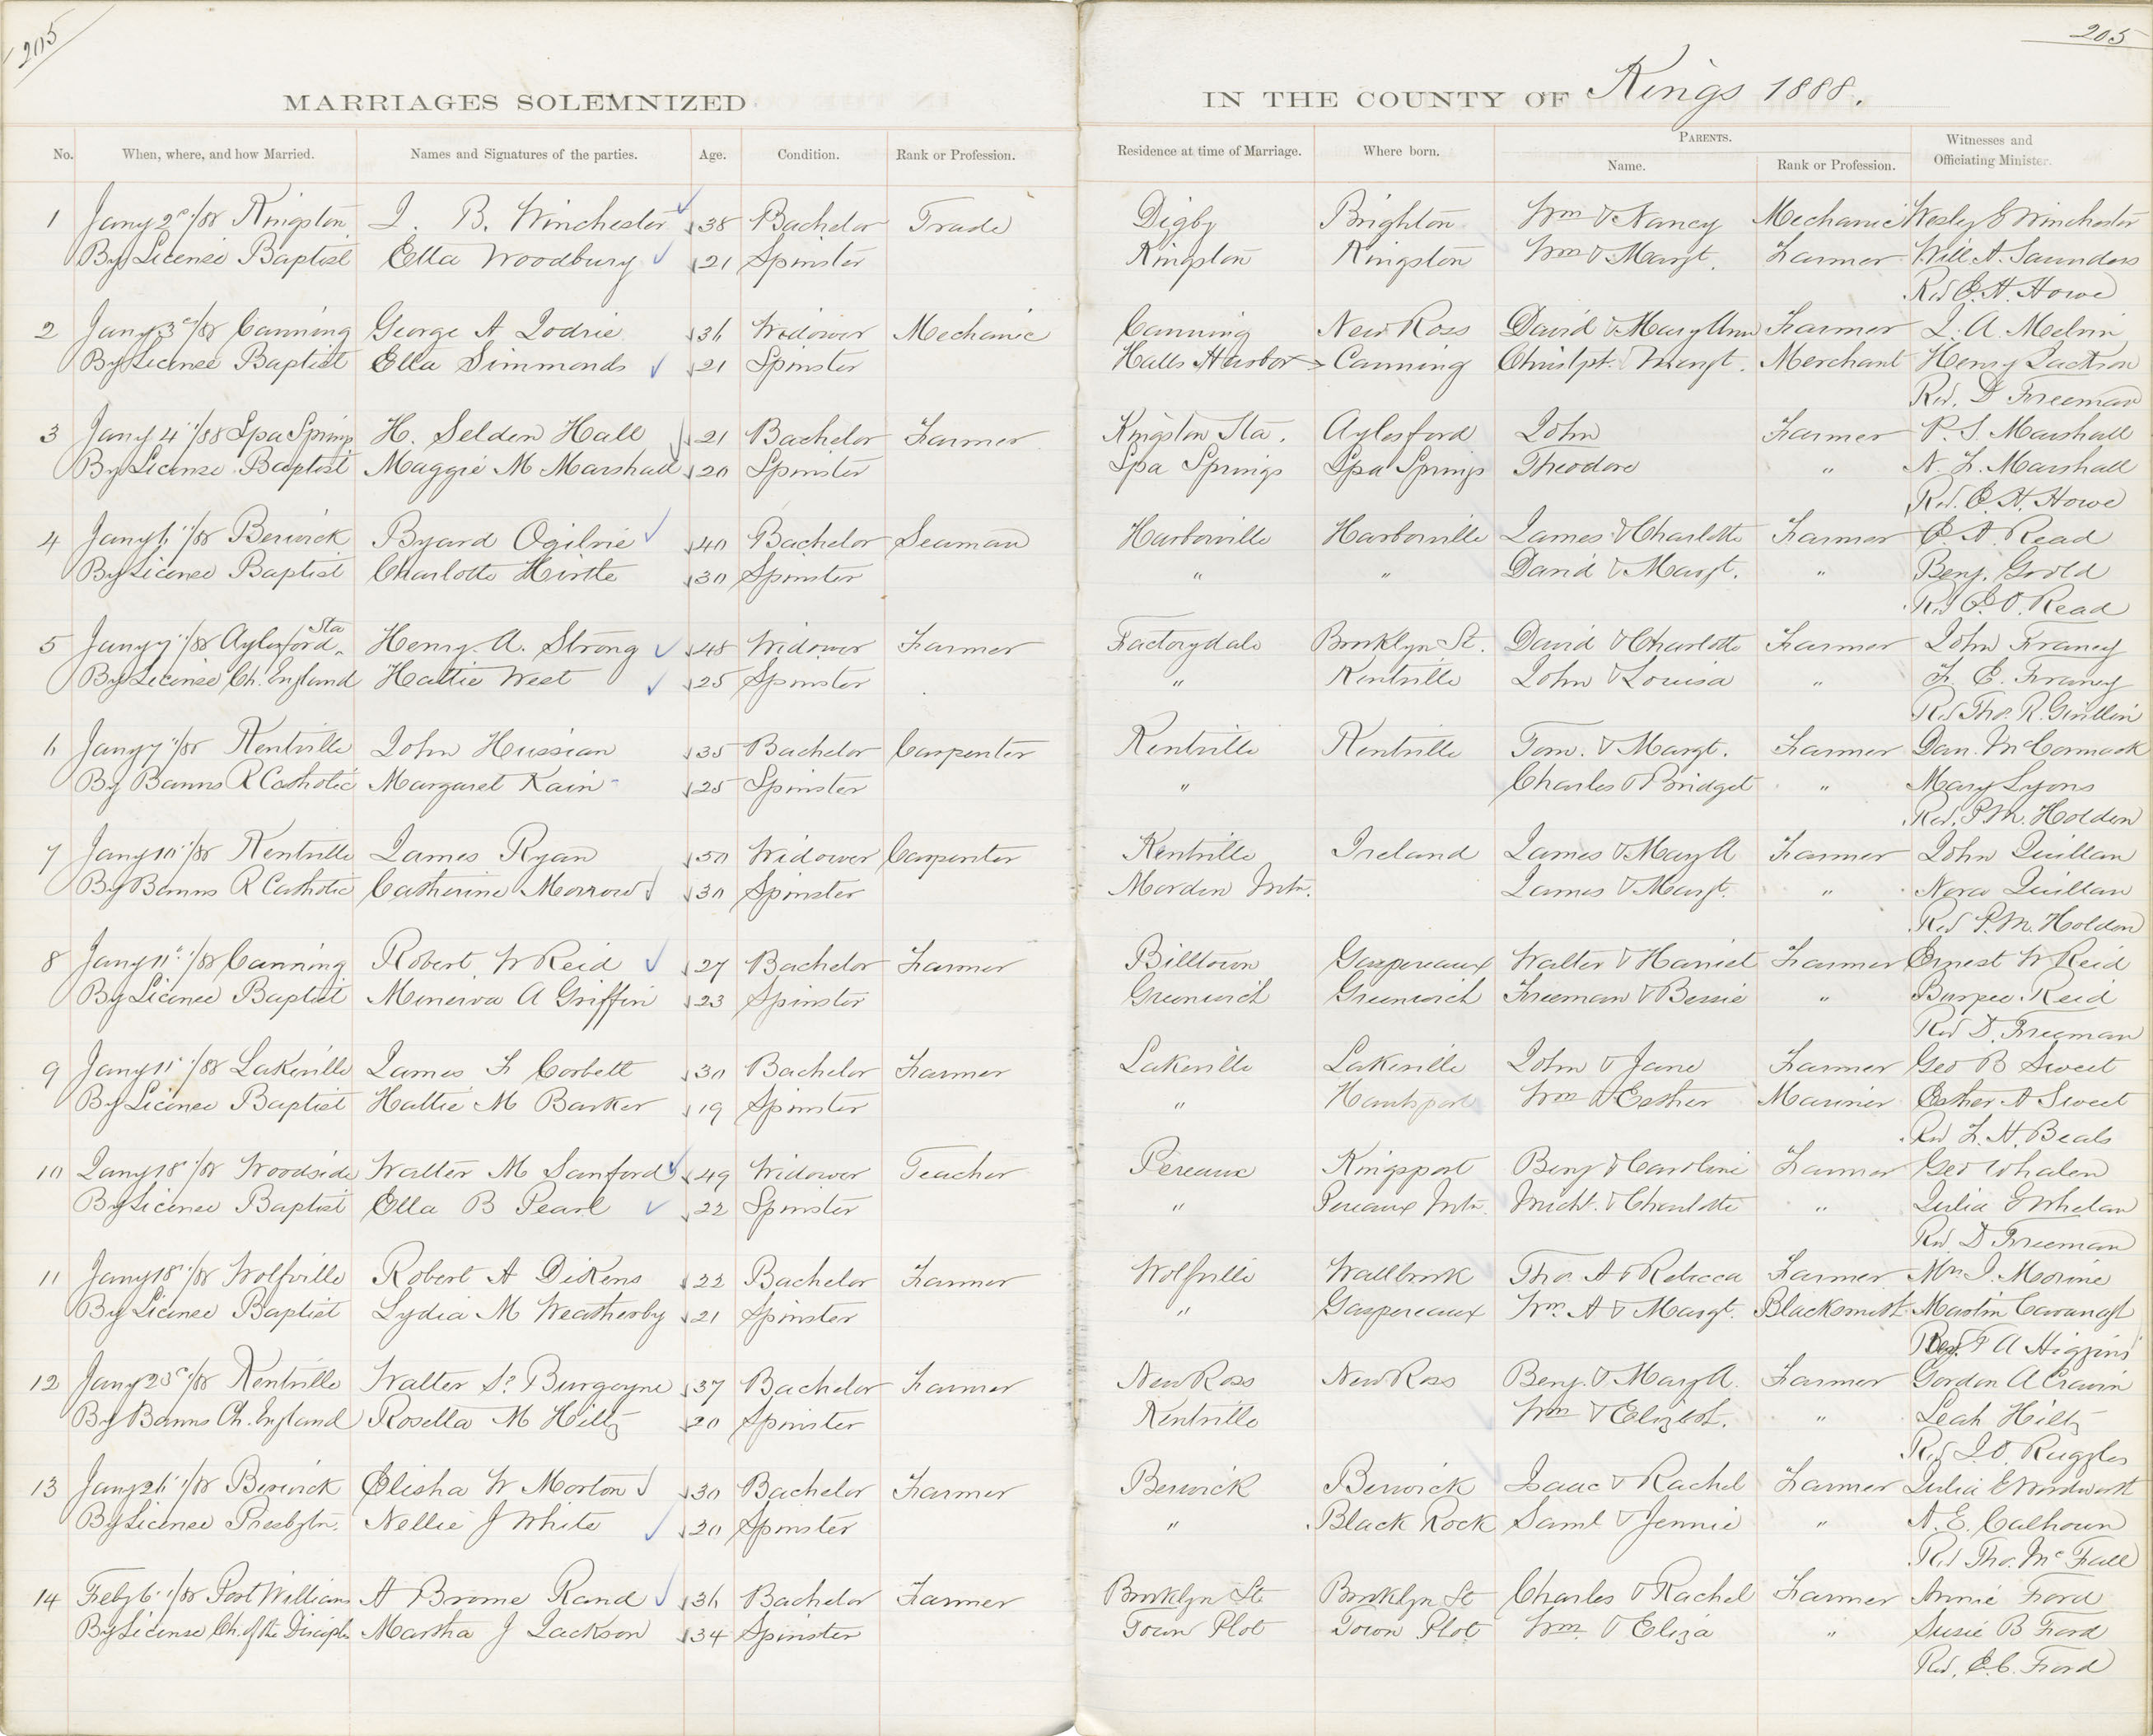 205
205
MARRIAGES SOLEMNIZED IN THE COUNTY OF Kings 1888.
No. When, where, and how Married. Names and Signatures of the parties. Age. Condition. Rank or Profession. Residence at time of Marriage. Where born. PARENTS. Name. Rank or Profession. Witnesses and Officiating Minister.
1 Jany 2d/88 Kingston J. B. Winchester 38 Bachelor Trade Digby Brighton Wm & Nancy Mechanic Wesley E Winchester
By License Baptist Etta Woodbury 21 Spinster Kingston Kingston Wm & Margt. Farmer Will A. Saunders
Rev E. H. Howe
2 Jany 3d/88 Canning George A Lodrie 36 Widower Mechanic Canning New Ross David & Mary Ann Farmer J. A. Melvin
By License Baptist Ella Simmonds 21 Spinster Halls Harbor Canning Christpr. Margt. Merchant Henry Jackson
Rev. D Freeman
3 Jany 4"/88 Spa Springs H. Selden Hall 21 Bachelor Farmer Kingston Sta. Aylesford John Farmer P. S. Marshall
By License Baptist Maggie M Marshall 20 Spinster Spa Springs Spa Springs Theodore " N. F. Marshall
Rev. E. H. Howe
4 Jany 6"/88 Berwick Byard Ogilvie 40 Bachelor Seaman Harborville Harborville James & Charlotte Farmer E. A. Read
By License Baptist Charlotte Hirtle 30 Spinster " " David & Margt. " Benj. Gould
Rev E. O. Read
5 Jany 7"/88 Aylesford Sta. Henry A. Strong 48 Widower Farmer Factorydale Brooklyn St. David & Charlotte Farmer John Franey
By License Ch. England Hattie West 25 Spinster " Kentville John & Louisa " F. E. Franey
Rev Tho. R. Gwillim
6 Jany 7"/88 Kentville John Hussian 35 Bachelor Carpenter Kentville Kentville Tom. & Margt. Farmer Dan. McCormack
By Banns R Catholic Margaret Kain 25 Spinster " Charles & Bridget " Mary Lyons
Rev. P. M. Holden
7 Jany 10"/88 Kentville James Ryan 50 Widower Carpenter Kentville Ireland James & Mary A Farmer John Quillan
By Banns R Catholic Catherine Morrow 30 Spinster Morden Mtn. James & Margt. " Nora Quillan
Rev P. M. Holden
8 Jany 11"/88 Canning Robert W Reid 27 Bachelor Farmer Billtown Gaspereaux Walter & Harriet Farmer Ernest W Reid
By License Baptist Minerva A Griffin 23 Spinster Greenwich Greenwich Freeman & Bessie " Burpee Reid
Rev D. Freeman
9 Jany 11"/88 Lakeville James F Corbett 30 Bachelor Farmer Lakeville Lakeville John & Jane Farmer Geo B Sweet
By License Baptist Hattie M Barker 19 Spinster " Hantsport Wm & Esther Mariner Esther A Sweet
Rev F. H. Beals
10 Jany 18"/88 Woodside Walter M Sanford 49 Widower Teacher Pereaux Kingsport Benj & Caroline Farmer Geo Whalen
By License Baptist Ella B Pearl 22 Spinster " Pereaux Mtn. Michl. & Charlotte " Julia E Whelan
Rev D Freeman
11 Jany 18"/88 Wolfville Robert A Dickens 22 Bachelor Farmer Wolfville Wallbrook Tho. A & Rebecca Farmer Mrs J. Morine
By License Baptist Lydia M Weatherby 21 Spinster " Gaspereaux Wm. A & Margt. Blacksmith Martin Cavanagh
Rev. T A Higgins
12 Jany 23d/88 Kentville Walter Sr Burgoyne 37 Bachelor Farmer New Ross New Ross Benj. & Mary A. Farmer Gordon A Cravin
By Banns Ch. England Rosella M Hiltz 20 Spinster Kentville Wm & Elizbt. " Leah Hiltz
Rev J. O. Ruggles
13 Jany 26"/88 Berwick Elisha W Morton 30 Bachelor Farmer Berwick Berwick Isaac & Rachel Farmer Julia E Woodworth
By License Presbytn. Nellie J White 20 Spinster " Black Rock Saml & Jennie " A. E. Calhoun
Rev Tho. Mc Fall
14 Feby 6"/88 Port Williams A Brome Rand 36 Bachelor Farmer Brooklyn St Brooklyn St Charles & Rachel Farmer Annie Ford
By License Ch. of the Disciples Martha J Jackson 34 Spinster Town Plot Town Plot Wm. & Eliza " Susie B Ford
Rev. E. C. Ford